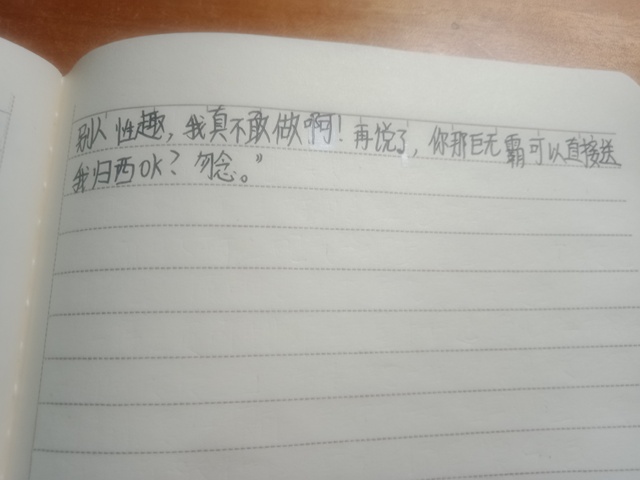 别人性趣，我真不敢做啊！再说了，你那巨无霸可以直接送
我归西OK？勿念。”